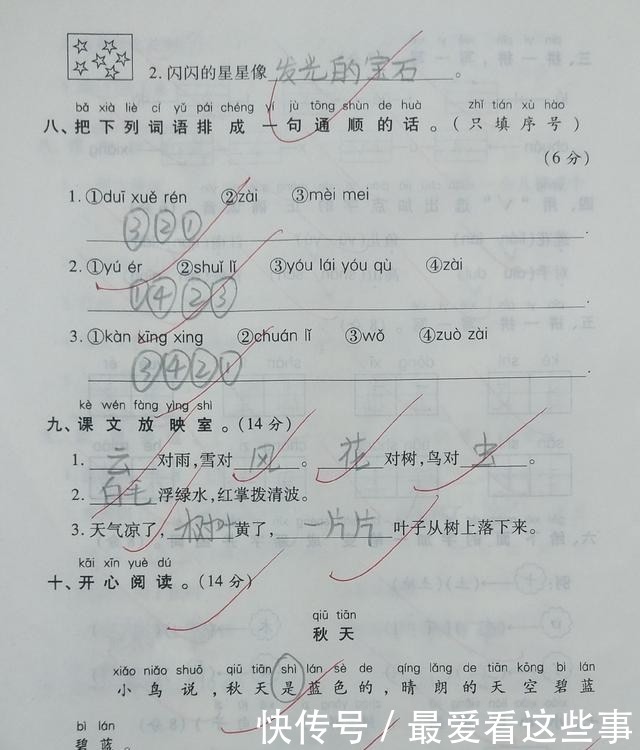 2. 闪闪的星星像发光的宝石。
bǎ xià liè cí yǔ pái chéng yí jù tōng shùn de huà zhǐ tián xù hào
八、把下列词语排成一句通顺的话。(只填序号)
(6分)
1. ①duī xuě rén ②zài ③mèi mei
③②①
2. ①yú ér ②shuǐ lǐ ③yóu lái yóu qù ④zài
①④②③
3. ①kàn xīng xing ②chuán lǐ ③wǒ ④zuò zài
③④②①
kè wén fàng yìng shì
九、课文放映室。(14分)
1. 云对雨,雪对风。花对树,鸟对虫。
2. 白毛浮绿水,红掌拨清波。
3. 天气凉了,树叶黄了,一片片叶子从树上落下来。
kāi xīn yuè dú
十、开心阅读。(14分)
qiū tiān
秋天
xiǎo niǎo shuō qiū tiān shì lán sè de qíng lǎng de tiān kōng bì lán
小鸟说,秋天是蓝色的,晴朗的天空碧蓝
bì lán
碧蓝。
快传号/最爱看这些事